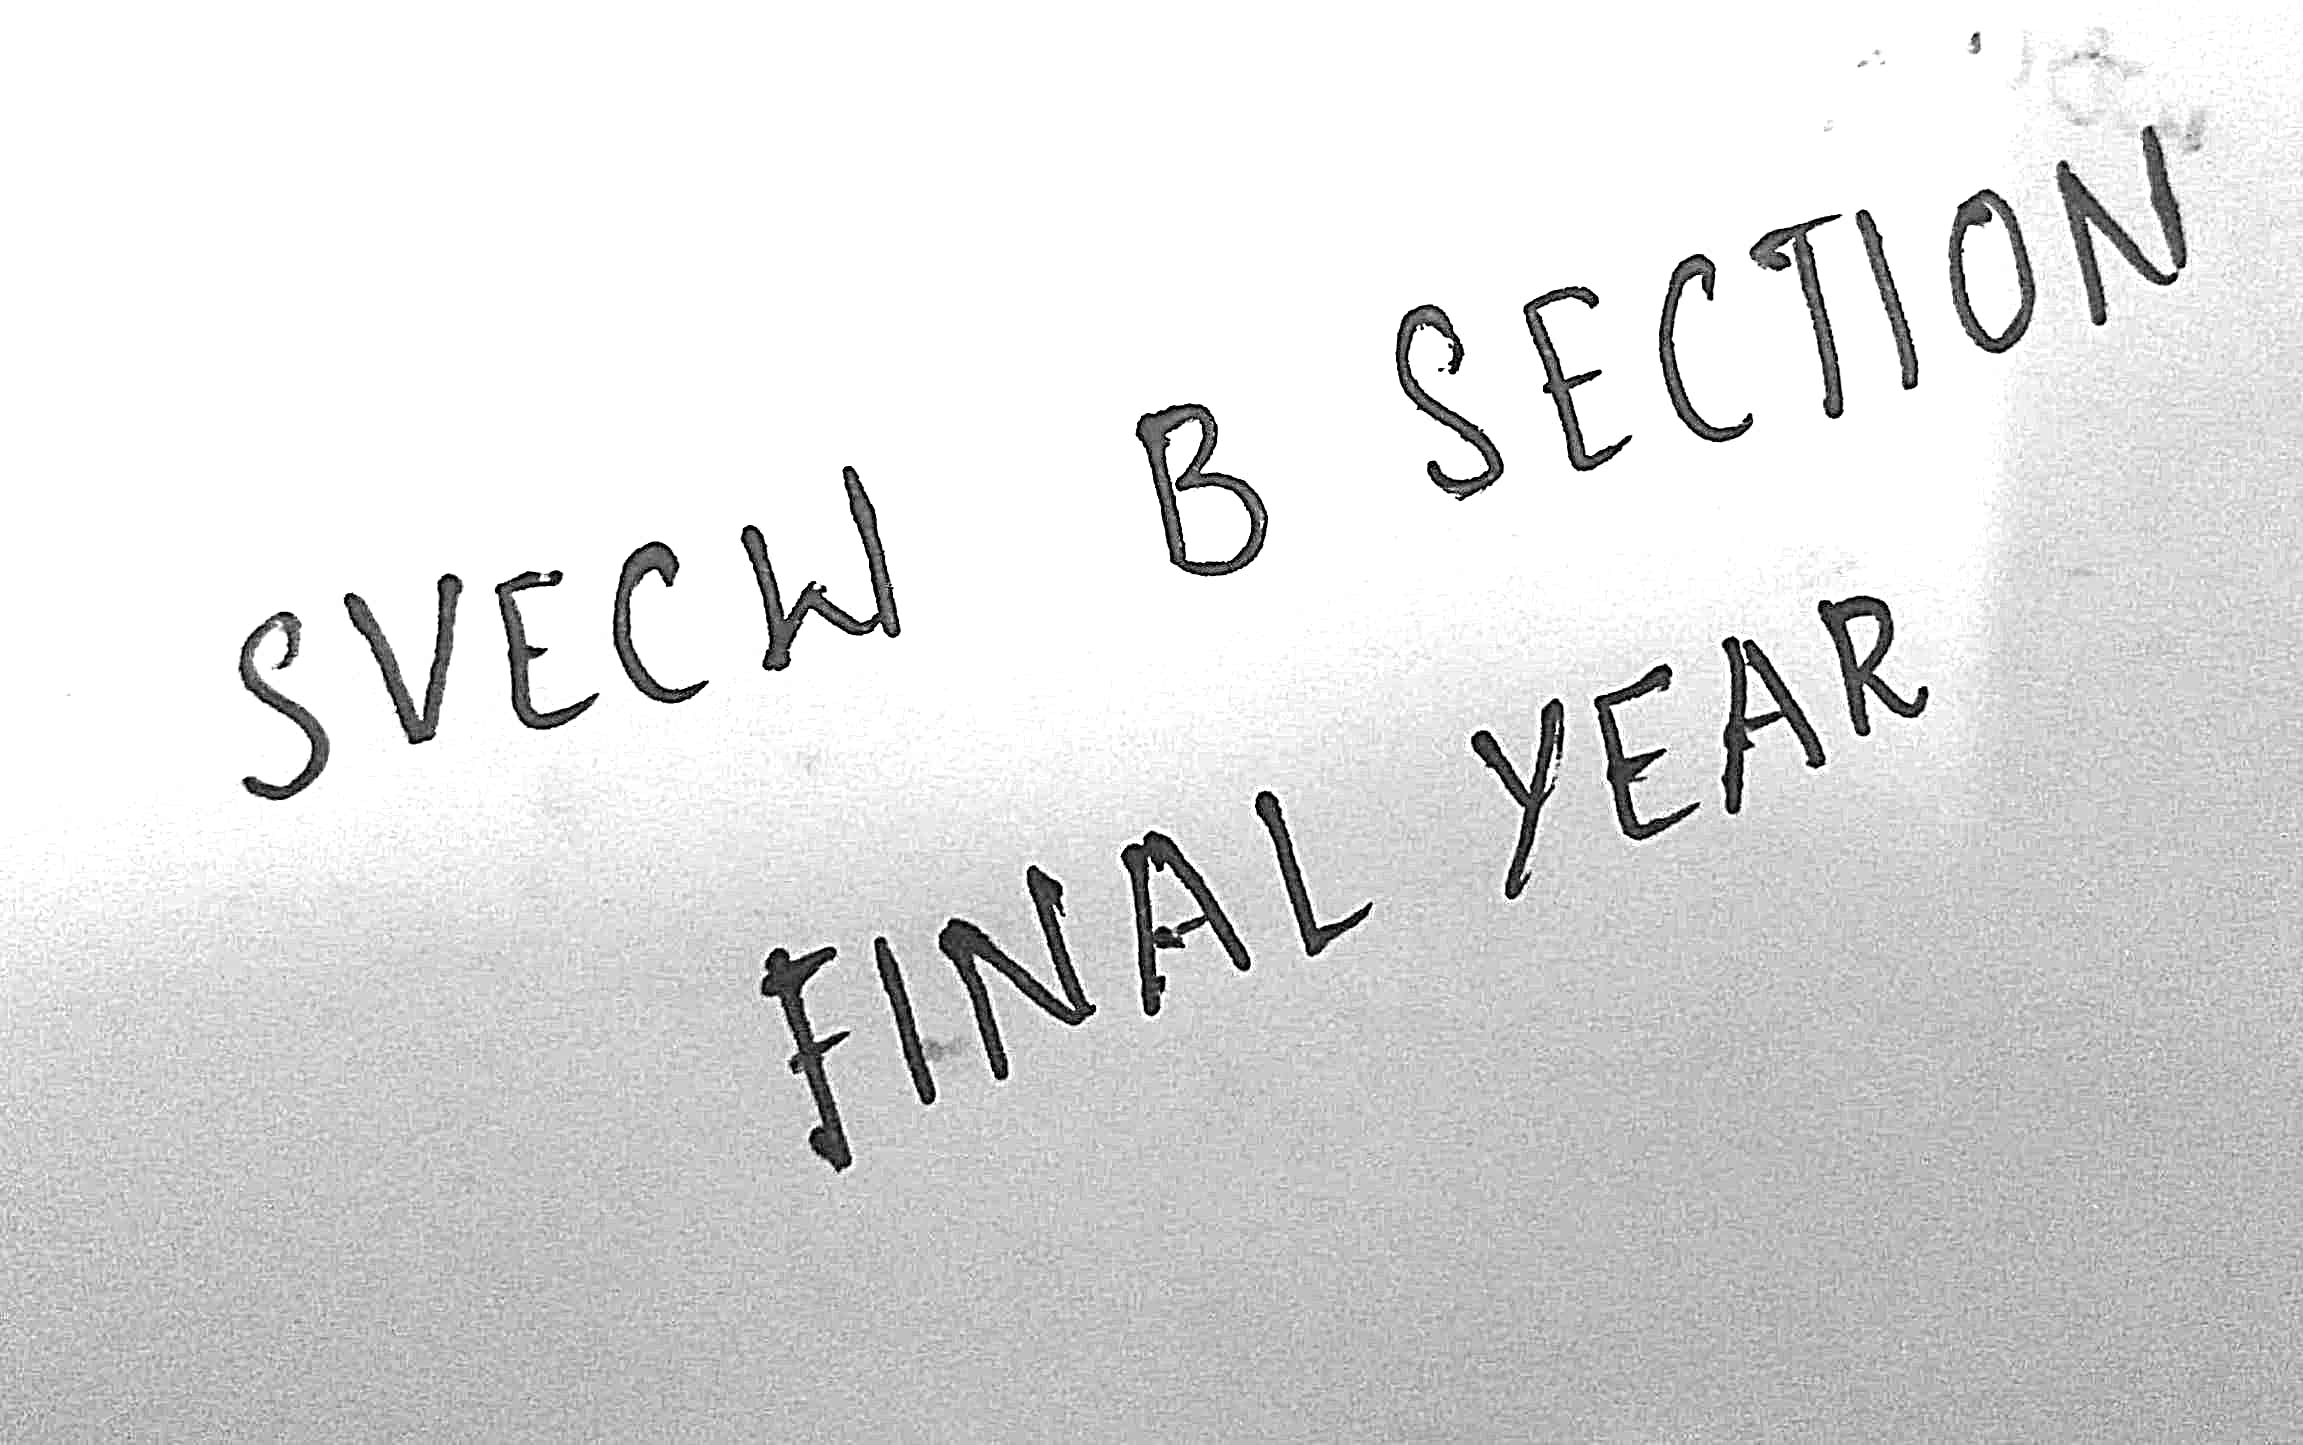 SVECW B SECTION
FINAL YEAR